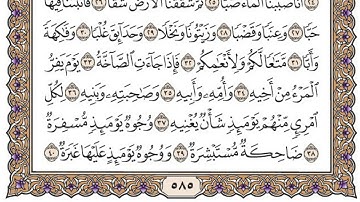 ٢٤ أَنَّا صَبَبْنَا ٱلْمَآءَ صَبًّا ٢٥ ثُمَّ شَقَقْنَا ٱلْأَرْضَ شَقًّا ٢٦ فَأَنۢبَتْنَا فِيهَا
حَبًّا ٢٧ وَعِنَبًا وَقَضْبًا ٢٨ وَزَيْتُونًا وَنَخْلًا ٢٩ وَحَدَآئِقَ غُلْبًا ٣٠ وَفَٰكِهَةً
وَأَبًّا ٣١ مَّتَٰعًا لَّكُمْ وَلِأَنْعَٰمِكُمْ ٣٢ فَإِذَا جَآءَتِ ٱلصَّآخَّةُ ٣٣ يَوْمَ يَفِرُّ
ٱلْمَرْءُ مِنْ أَخِيهِ ٣٤ وَأُمِّهِۦ وَأَبِيهِ ٣٥ وَصَٰحِبَتِهِۦ وَبَنِيهِ ٣٦ لِكُلِّ
ٱمْرِئٍ مِّنْهُمْ يَوْمَئِذٍ شَأْنٌ يُغْنِيهِ ٣٧ وُجُوهٌ يَوْمَئِذٍ مُّسْفِرَةٌ
٣٨ ضَاحِكَةٌ مُّسْتَبْشِرَةٌ ٣٩ وَوُجُوهٌ يَوْمَئِذٍ عَلَيْهَا غَبَرَةٌ ٤٠
٥٨٥